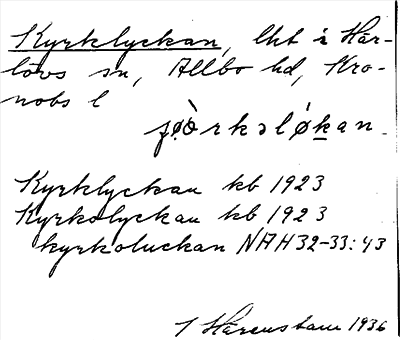 Kyrklyckan, lht i Här-
lövs sn, Allbo hd, Kro-
nobs l
Kyrklyckan kb 1923
Kyrkolyckan kb 1923
kyrkoluckan NAH 32-33: 43
Härenstam 1936